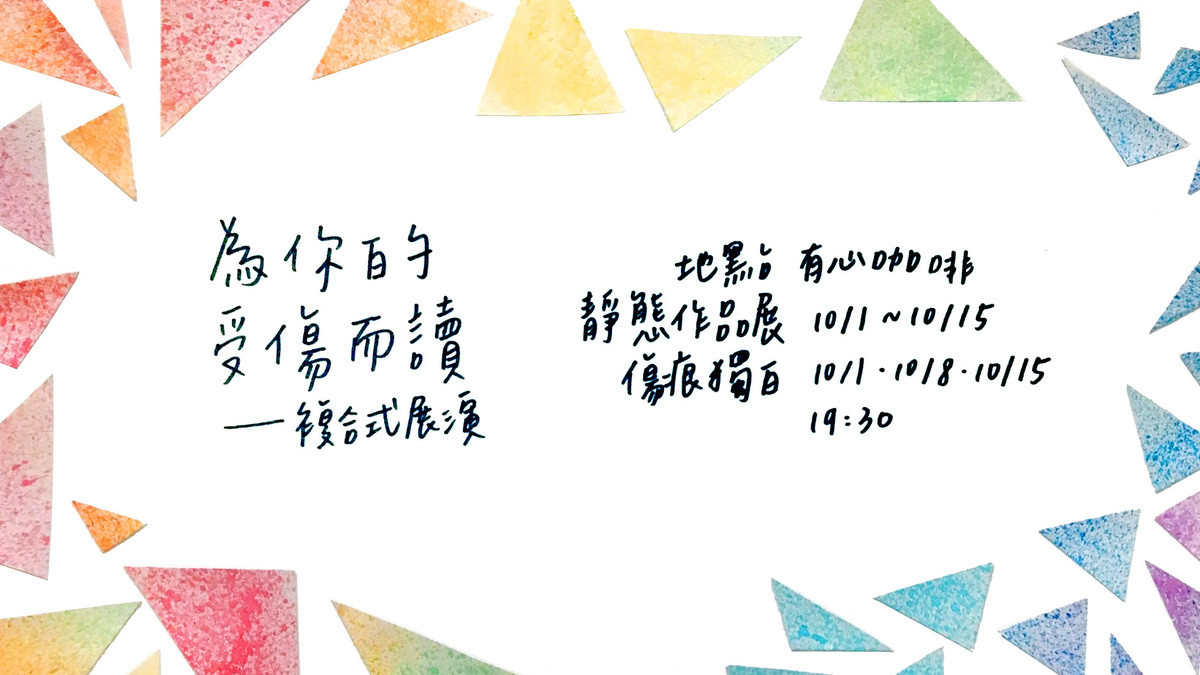 為你的
受傷而讀
—複合式展演
地點 有心咖啡
靜態作品展 10/1~10/15
傷痕獨白 10/1·10/8·10/15
19:30